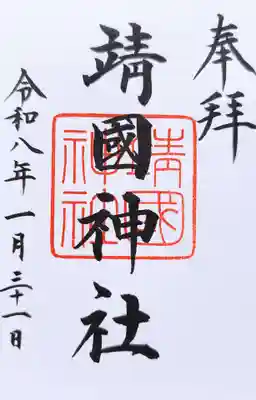 奉拝
靖國神社
靖國
神社
令和八年一月三十一日